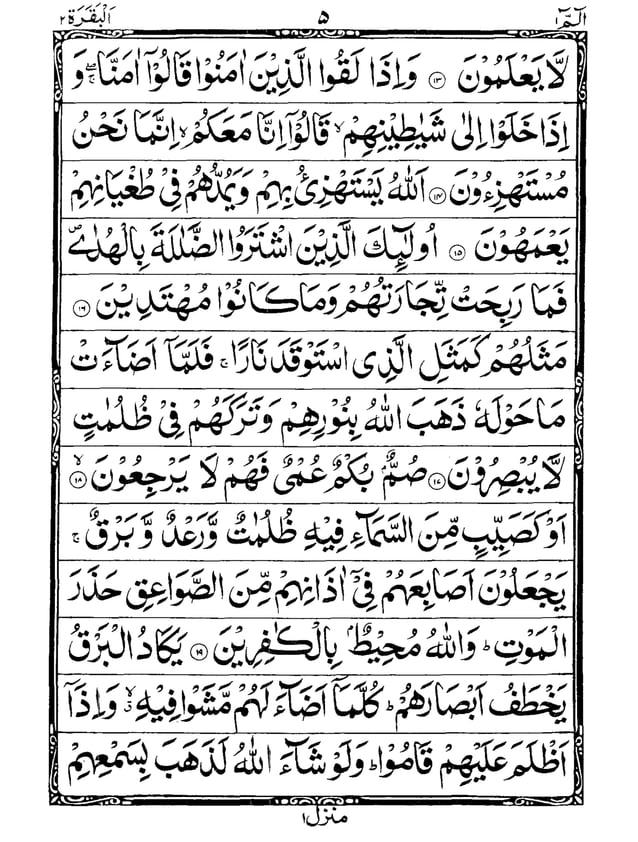 الٓمّٓ ۱ ۵ اَلْبَقَرَة ۲
لَّا يَعْلَمُوْنَ ۝۱۳ وَاِذَا لَقُوا الَّذِيْنَ اٰمَنُوْا قَالُوْٓا اٰمَنَّا ۚۖ وَ
اِذَا خَلَوْا اِلٰى شَيٰطِيْنِهِمْ ۙ قَالُوْٓا اِنَّا مَعَكُمْ ۙ اِنَّمَا نَحْنُ
مُسْتَهْزِءُوْنَ ۝۱۴ اَللّٰهُ يَسْتَهْزِئُ بِهِمْ وَيَمُدُّهُمْ فِيْ طُغْيَانِهِمْ
يَعْمَهُوْنَ ۝۱۵ اُولٰٓئِكَ الَّذِيْنَ اشْتَرَوُا الضَّلٰلَةَ بِالْهُدٰى ۪
فَمَا رَبِحَتْ تِّجَارَتُهُمْ وَمَا كَانُوْا مُهْتَدِيْنَ ۝۱۶
مَثَلُهُمْ كَمَثَلِ الَّذِى اسْتَوْقَدَ نَارًا ۚ فَلَمَّآ اَضَآءَتْ
مَا حَوْلَهٗ ذَهَبَ اللّٰهُ بِنُوْرِهِمْ وَتَرَكَهُمْ فِيْ ظُلُمٰتٍ
لَّا يُبْصِرُوْنَ ۝۱۷ صُمٌّۢ بُكْمٌ عُمْيٌ فَهُمْ لَا يَرْجِعُوْنَ ۝۱۸ ۙ
اَوْ كَصَيِّبٍ مِّنَ السَّمَآءِ فِيْهِ ظُلُمٰتٌ وَّرَعْدٌ وَّبَرْقٌ ۚ
يَجْعَلُوْنَ اَصَابِعَهُمْ فِيْٓ اٰذَانِهِمْ مِّنَ الصَّوَاعِقِ حَذَرَ
الْمَوْتِ ؕ وَاللّٰهُ مُحِيْطٌۢ بِالْكٰفِرِيْنَ ۝۱۹ يَكَادُ الْبَرْقُ
يَخْطَفُ اَبْصَارَهُمْ ؕ كُلَّمَآ اَضَآءَ لَهُمْ مَّشَوْا فِيْهِ ۙۗ وَاِذَآ
اَظْلَمَ عَلَيْهِمْ قَامُوْا ؕ وَلَوْ شَآءَ اللّٰهُ لَذَهَبَ بِسَمْعِهِمْ
منزل ۱